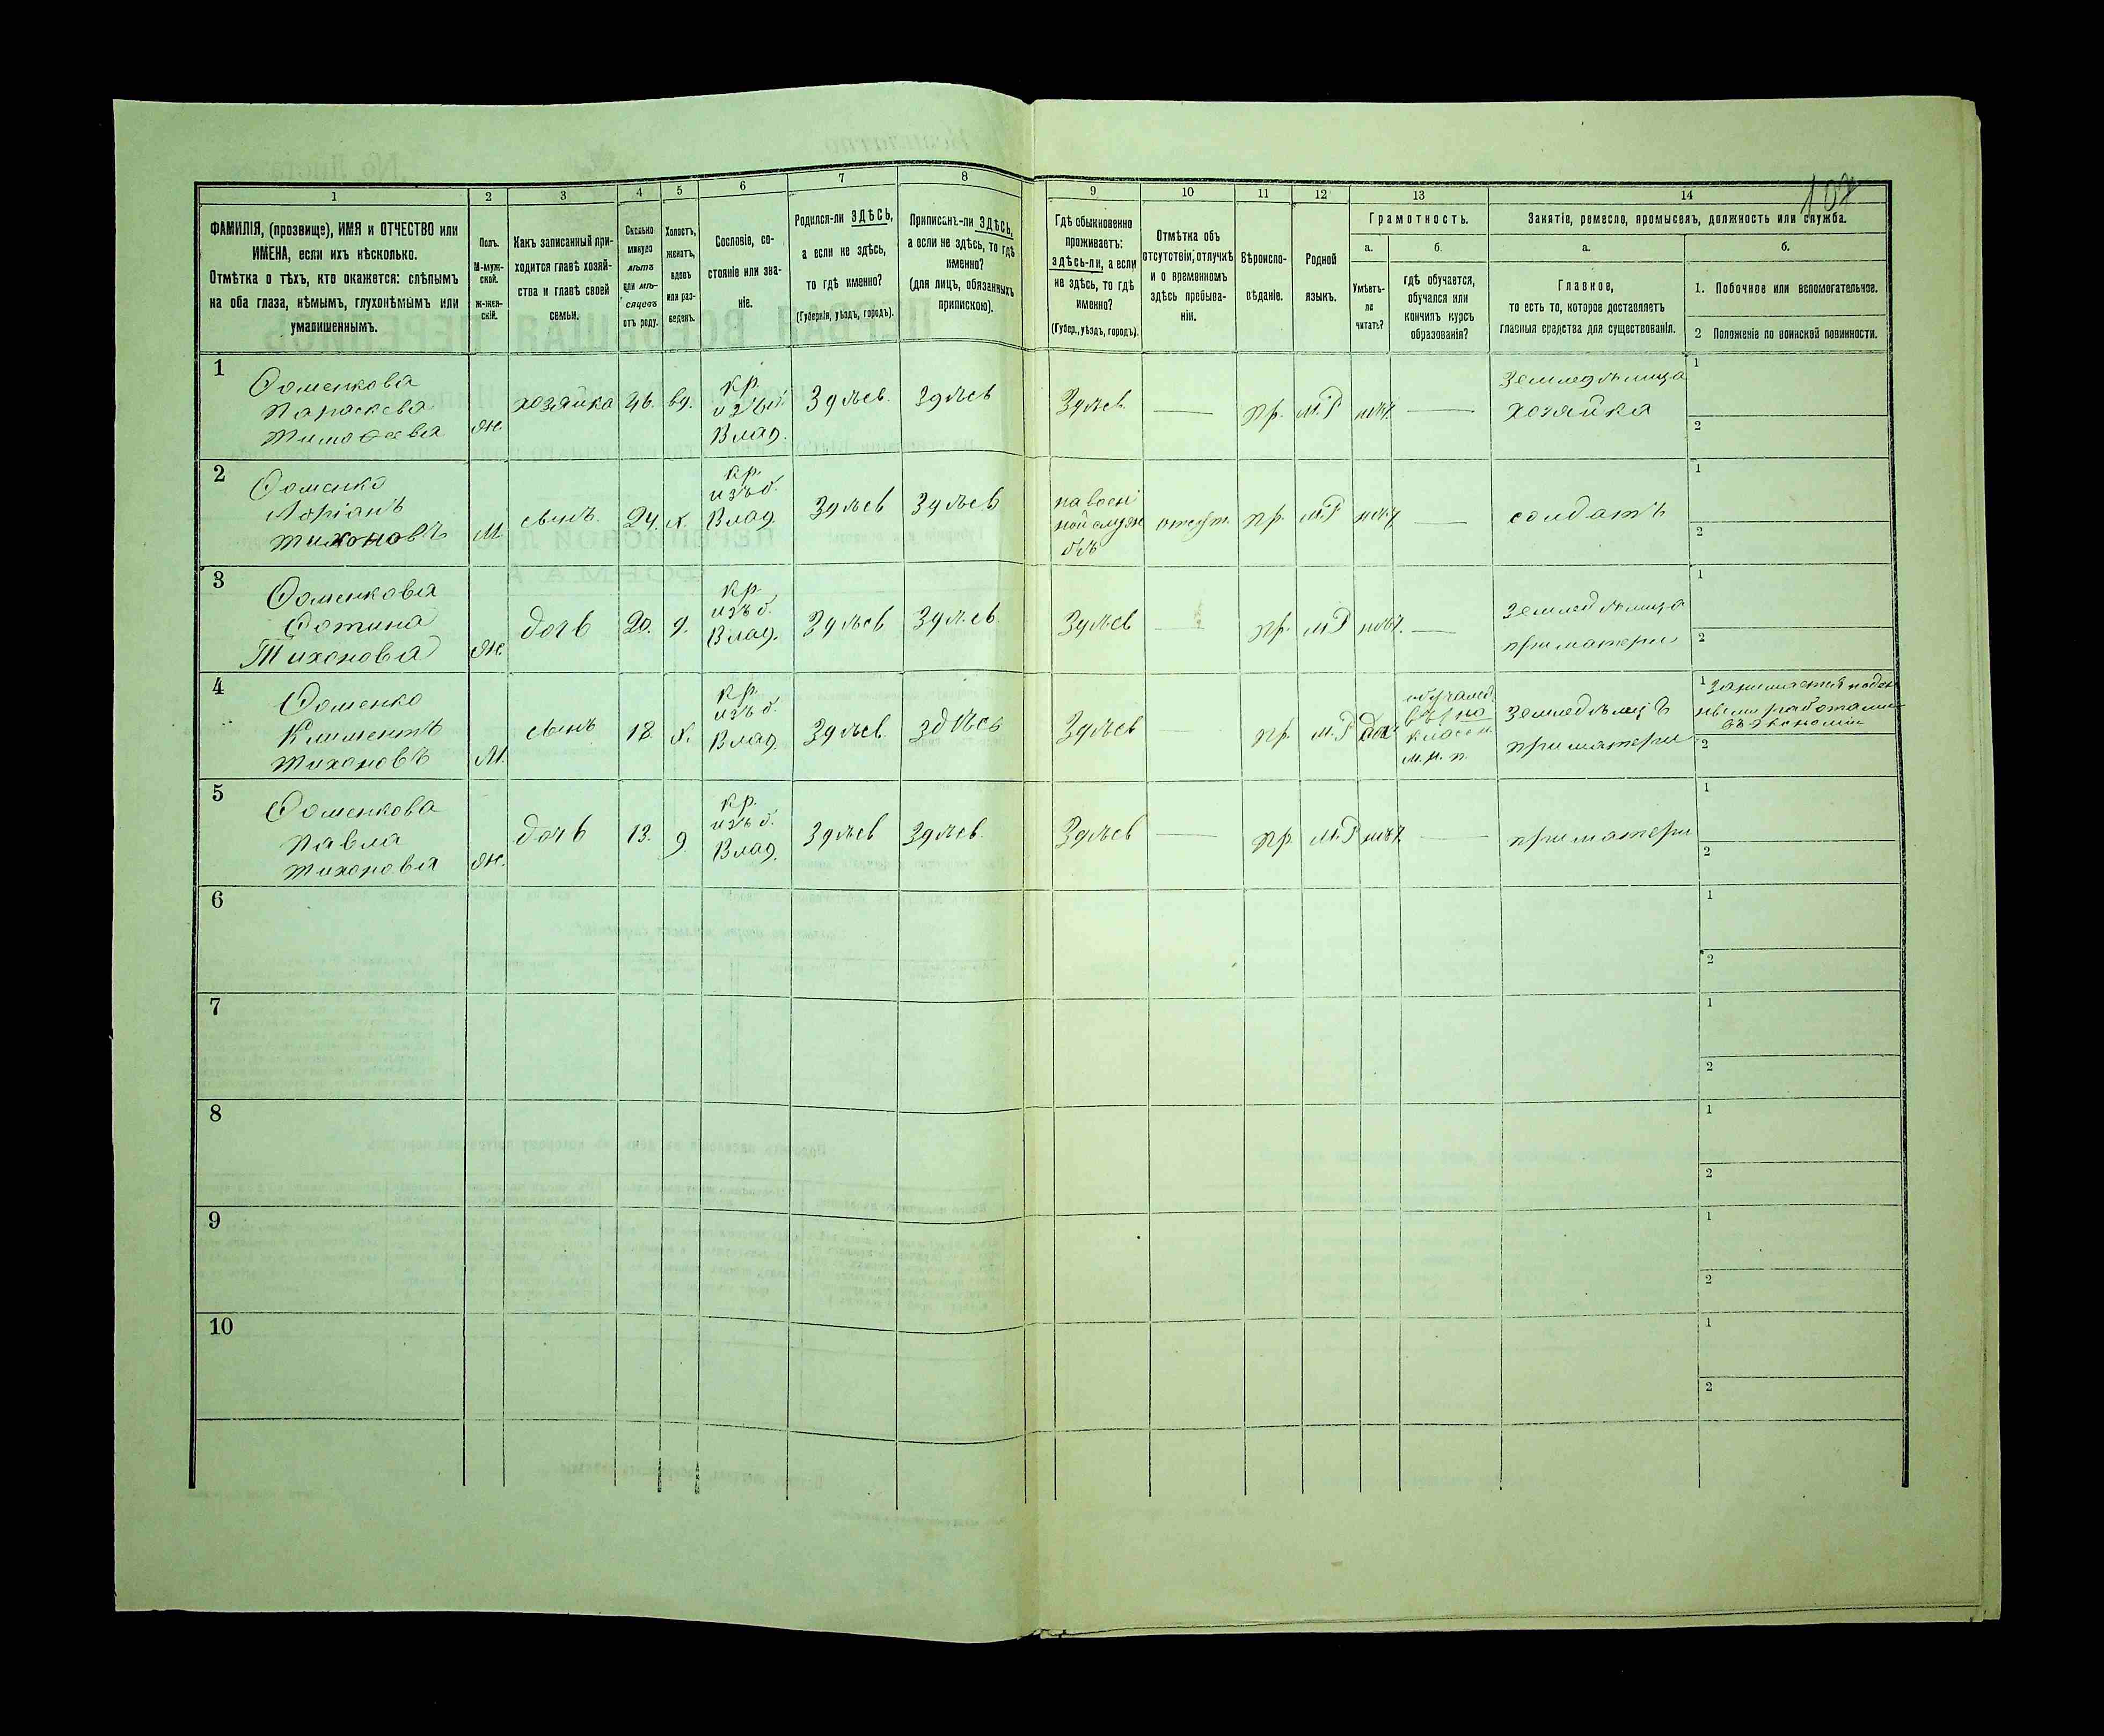 107
1 2 3 4 5 6 7 8 9 10 11 12 13 14
ФАМИЛІЯ, (прозвище), ИМЯ и ОТЧЕСТВО или
ИМЕНА, если ихъ нѣсколько.
Отмѣтка о тѣхъ, кто окажется: слѣпымъ
на оба глаза, нѣмымъ, глухонѣмымъ или
умалишеннымъ.
Полъ.
М-муж-
ской.
Ж-жен-
скій.
Какъ записанный при-
ходится главѣ хозяй-
ства и главѣ своей
семьи.
Сколько
минуло
лѣтъ
или мѣ-
сяцевъ
отъ роду.
Холостъ,
женатъ,
вдовъ
или раз-
веденъ.
Сословіе, со-
стояніе или зва-
ніе.
Родился-ли ЗДѢСЬ,
а если не здѣсь,
то гдѣ именно?
(Губернія, уѣздъ, городъ).
Приписанъ-ли ЗДѢСЬ,
а если не здѣсь, то гдѣ
именно?
(для лицъ, обязанныхъ
припискою).
Гдѣ обыкновенно
проживаетъ:
здѣсь-ли, а если
не здѣсь, то гдѣ
именно?
(Губер., уѣздъ, городъ).
Отмѣтка объ
отсутствіи, отлучкѣ
и о временномъ
здѣсь пребыва-
ніи.
Вѣроиспо-
вѣданіе.
Родной
языкъ.
Грамотность.
а.
Умѣетъ-
ли
читать?
б.
гдѣ обучается,
обучался или
кончилъ курсъ
образованія?
Занятіе, ремесло, промыселъ, должность или служба.
а.
Главное,
то есть то, которое доставляетъ
главныя средства для существованія.
б.
1. Побочное или вспомогательное.
2 Положеніе по воинской повинности.
1
Ѳоменкова
Параскева
Тимоѳеева
Ж.
хозяйка
46.
вд.
кр.
изъ б.
Влад.
Здѣсь.
Здѣсь
Здѣсь
пр.
м.Р
нѣт.
Земледѣлица
хозяйка
1
2
2
Ѳоменко
Тихоновъ
М.
сынъ.
24.
х.
кр.
изъ б.
Влад.
Здѣсь
Здѣсь
на воен
ной служ
бѣ
отсут.
пр.
м.Р
солдатъ
1
2
3
Ѳоменкова
Ѳотина
Тихонова
Ж.
дочь
20.
д.
кр.
изъ б.
Влад.
Здѣсь
Здѣсь
Здѣсь
пр.
м.Р
нѣт.
Земледѣлица
при матери
1
2
4
Ѳоменко
Климентъ
Тихоновъ
М.
сынъ
18
х.
кр.
изъ б.
Влад.
Здѣсь.
здѣсь
Здѣсь
пр.
м.Р
да
обучался
въ
класн.
Земледѣлецъ
при матери
1 Занимается поден
ными работами
въ экономіи
2
5
Ѳоменкова
Павла
Тихонова
Ж.
дочь
13.
д
кр.
изъ б.
Влад.
Здѣсь
Здѣсь.
Здѣсь
пр.
м.Р
нѣт.
при матери
1
2
6
1
2
7
1
2
8
1
2
9
1
2
10
1
2